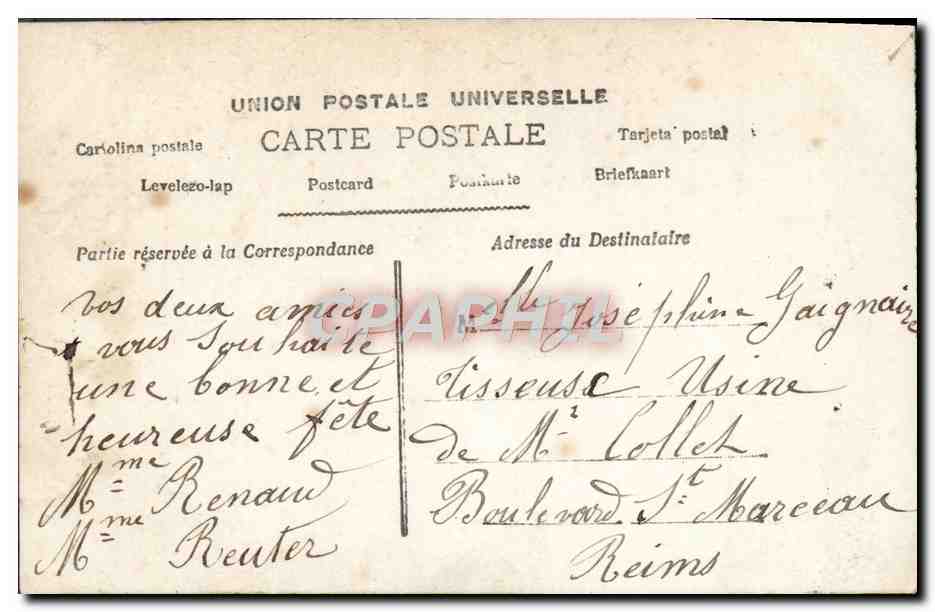 UNION POSTALE UNIVERSELLE
CARTE POSTALE
Cartolina postale
Tarjeta postal
Levelezo-lap
Postcard
Postkarte
Briefkaart
Partie réservée à la Correspondance
Adresse du Destinataire
vos deux amies
vous Souhaite
une bonne et
heureuse fête
Mme Renaud
Mme Reuter
Mlle Joséphine Gaignaire
Tisseuse Usine
de Mr Collet
Boulevard St Marceau
Reims
CPAPHIL